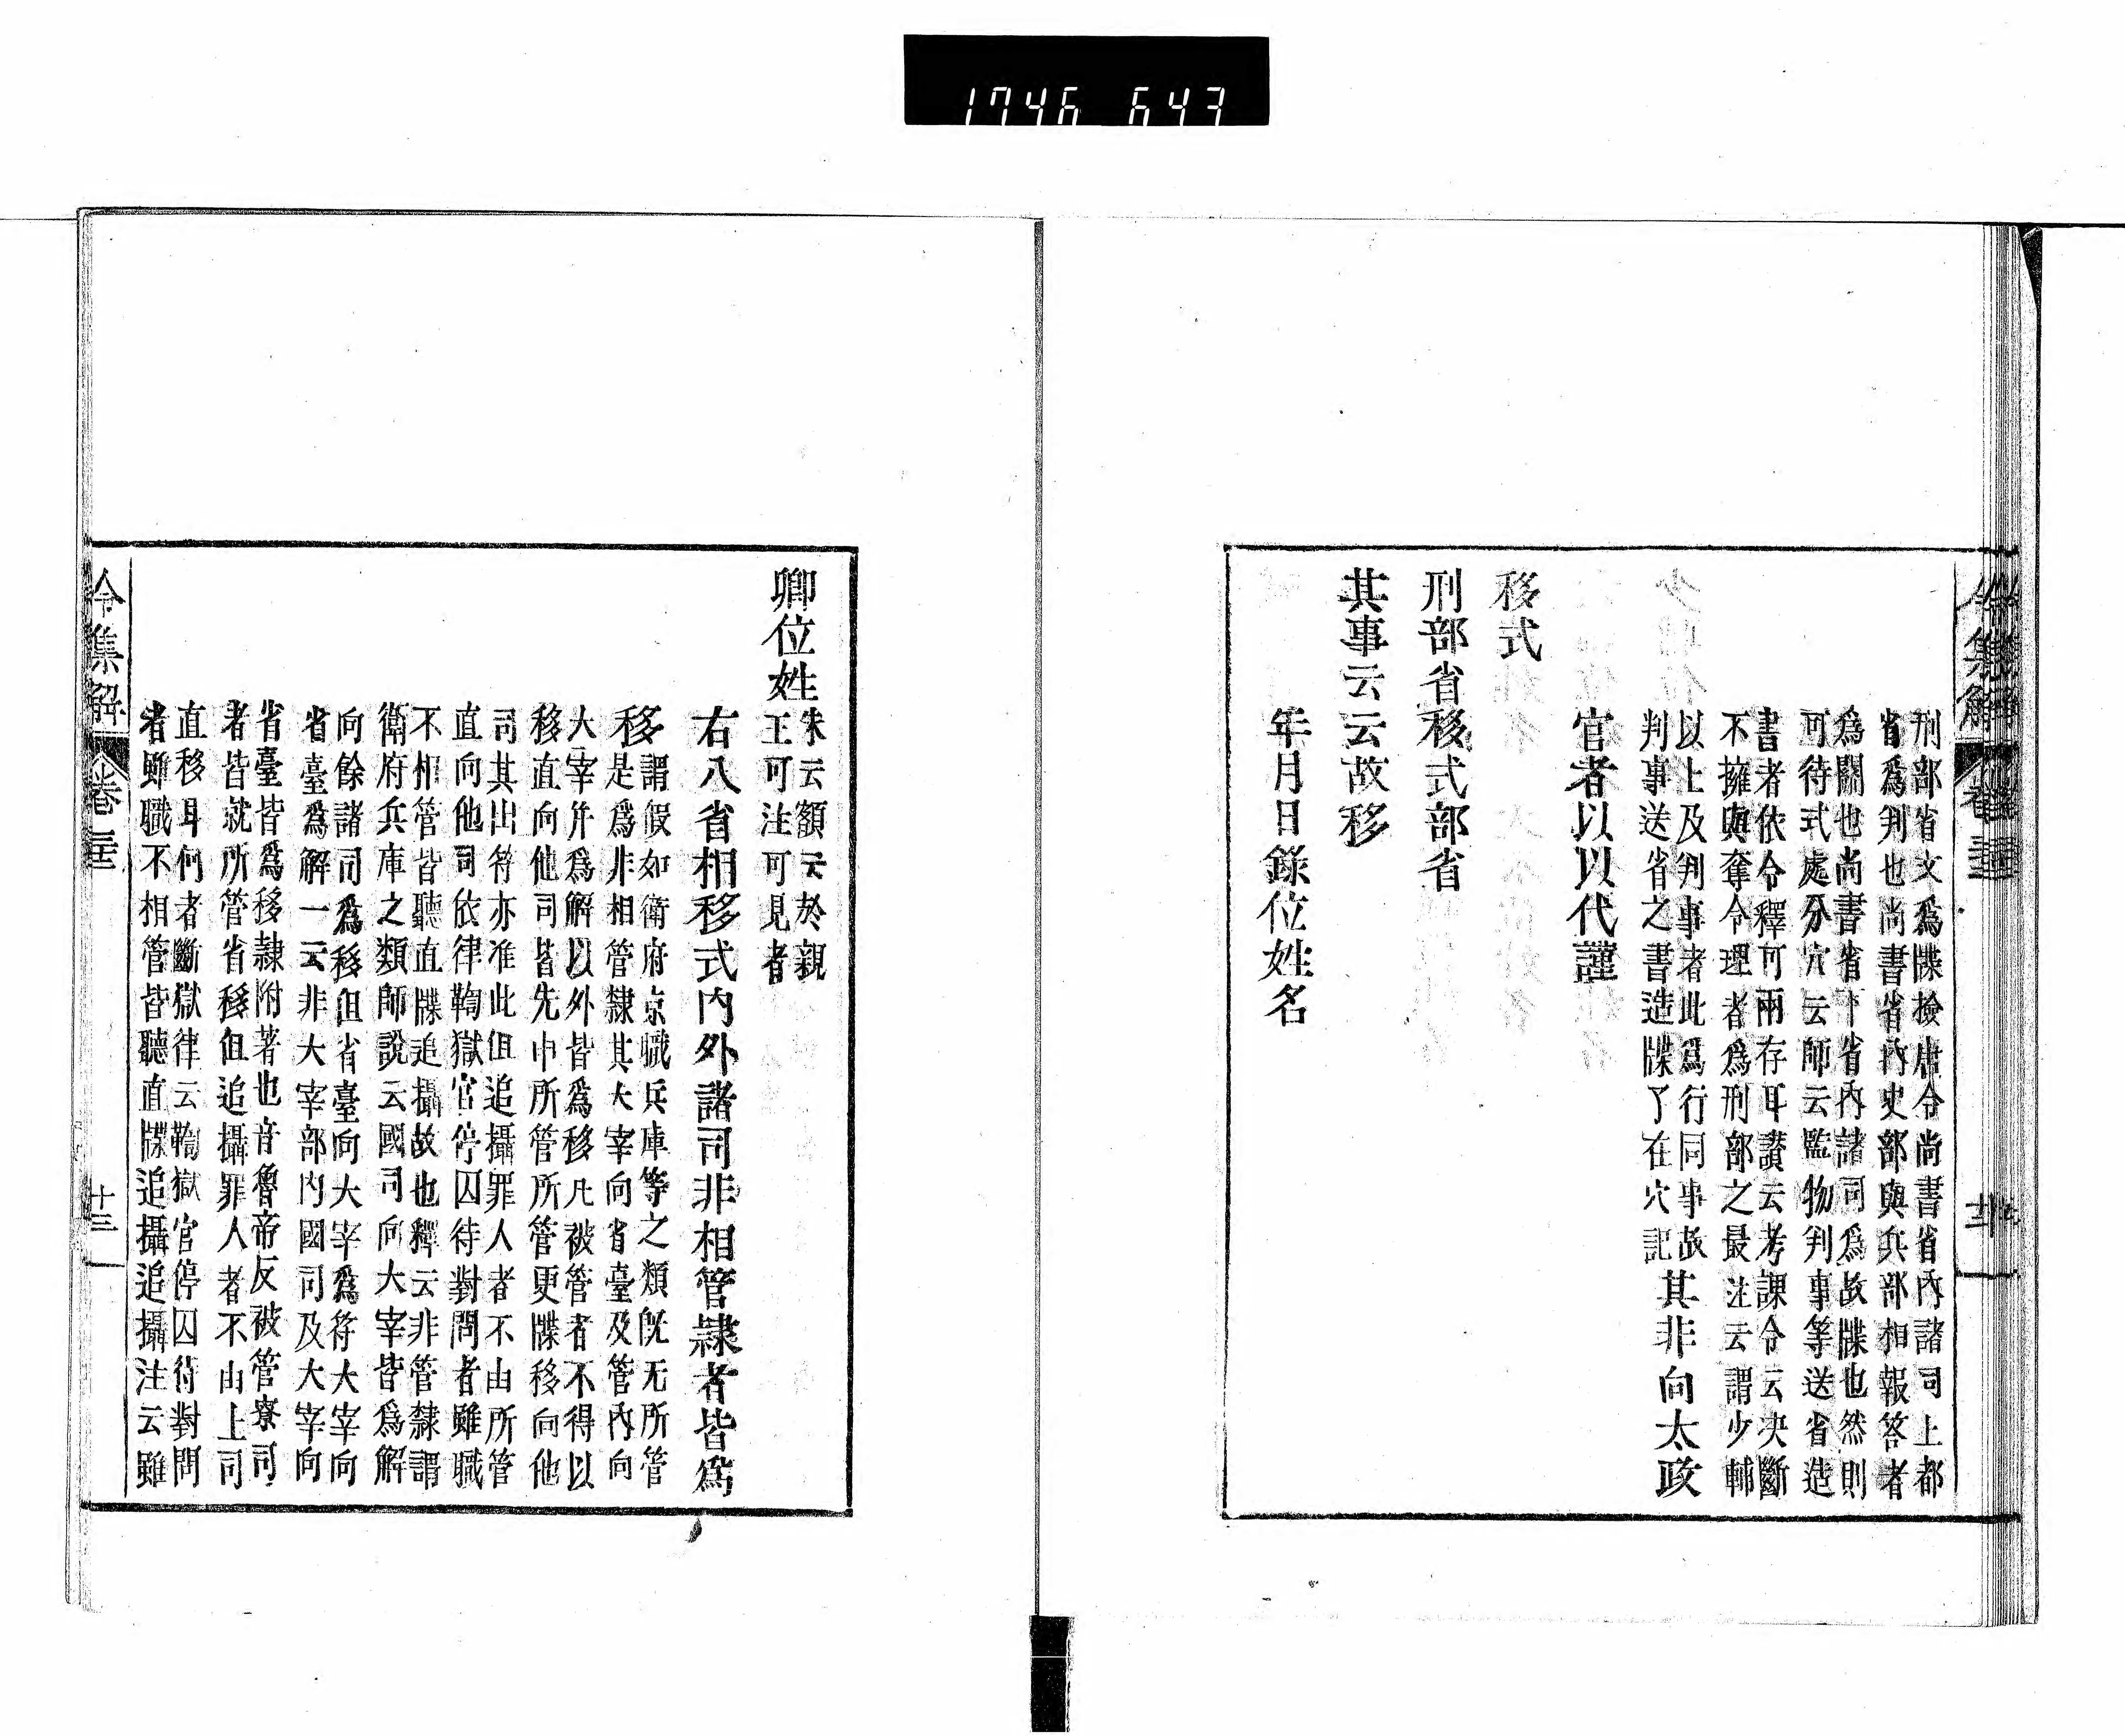 1746 643
刑部省文爲牒撿唐令尚書省內諸司上都
省爲判也尚書省內吏部與兵部相報答者
爲關也尚書省下省內諸司爲故牒也然則
可待式處分穴云師云監物判事等送省造
書者依令釋可兩存耳讃云考課令云决斷
不擁與奪令理者爲刑部之最注云謂少輔
以上及判事者此爲行同事故
判事送省之書造牒了在穴記
其非向太政
官者以以代謹
移式
刑部省移式部省
其事云云故移
年月日錄位姓名
卿位姓
朱云額云於親
王可注可見者
右八省相移式內外諸司非相管隷者皆爲
移
謂假如衛府京職兵庫等之類旣无所管
是爲非相管隷其大宰向省臺及管內向
大宰并爲解以外皆爲移凡被管者不得以
移直向他司皆先申所管所管更牒移向他
司其出符亦准此但追攝罪人者不由所管
直向他司依律鞫獄官停囚待對問者雖職
不相管皆聽直牒追攝故也釋云非管隷謂
衛府兵庫之類師說云國司向大宰皆爲解
向餘諸司爲移但省臺向大宰爲符大宰向
省臺爲解一云非大宰部內國司及大宰向
省臺皆爲移隷附著也音魯帝反被管寮司
者皆就所管省移但追攝罪人者不由上司
直移耳何者斷獄律云鞫獄官停囚待對問
者雖職不相管皆聽直牒追攝追攝注云雖
令集解
卷三十二
十三